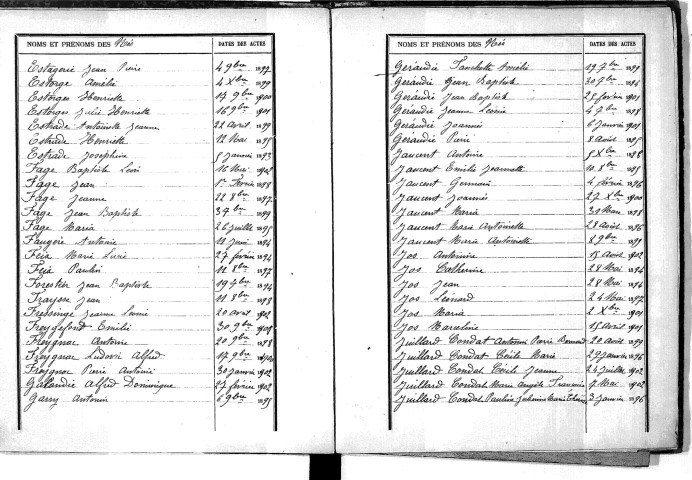 NOMS ET PRÉNOMS DES Nés DATES DES ACTES
Estagerie Jean Pierre 4 9bre 1897
Estorge Amélie 4 Xbre 1899
Estorges Henriette 17 9bre 1900
Estorges Julie Henriette 16 9bre 1901
Estrade Antoinette Jeanne 22 Avril 1899
Estrade Henriette 12 Mai 1895
Estrade Josephine 5 janvier 1893
Fage Baptiste Léon 16 Mai 1902
Fage Jean 1er Février 1898
Fage Jeanne 22 8bre 1897
Fage Jean Baptiste 3 7bre 1899
Fage Maria 26 juillet 1895
Faugère Antoine 18 juin 1894
Feix Marie Lucie 27 février 1894
Feix Paulin 11 8bre 1897
Forestier Jean Baptiste 19 7bre 1894
Fraysse Jean 11 8bre 1898
Fressinge Jeanne Léonie 20 avril 1902
Freygefond Emilie 30 9bre 1901
Freygnac Antoine 20 9bre 1898
Freygnac Ludovic Alfred 17 9bre 1900
Freygnac Pierre Antoine 30 janvier 1902
Galandie Alfred Dominique 27 février 1902
Garry Antonin 6 9bre 1895
NOMS ET PRÉNOMS DES Nés DATES DES ACTES
Gerandie Fanchette Amélie 19 7bre 1899
Gerandie Jean Baptiste 30 7bre 1894
Gerandie Jean Baptiste 25 février 1901
Gerandie Jeanne Léonie 4 9bre 1898
Gerandie Joannès 6 janvier 1901
Gerandie Pierre 8 août 1895
Jaucent Antoine 5 Xbre 1898
Jaucent Emilie Jeannette 10 8bre 1895
Jaucent Germain 4 février 1896
Jaucent Joannès 27 Xbre 1900
Jaucent Maria 31 Mars 1898
Jaucent Marie Antoinette 28 Avril 1896
Jaucent Marie Antoinette 8 9bre 1899
Jos Antoinine 15 Avril 1902
Jos Catherine 28 Mai 1894
Jos Jean 28 Mai 1894
Jos Léonard 24 Mai 1897
Jos Maria 2 Xbre 1901
Jos Marceline 15 Avril 1901
Juillard Condat Antonin Pierre Bernard 20 Août 1899
Juillard Condat Cécile Marie 29 janvier 1896
Juillard Condat Cécile Jeanne 24 juillet 1902
Juillard Condat Marie Angèle Françoise 7 Mai 1902
Juillard Condat Pauline Marie 3 janvier 1896